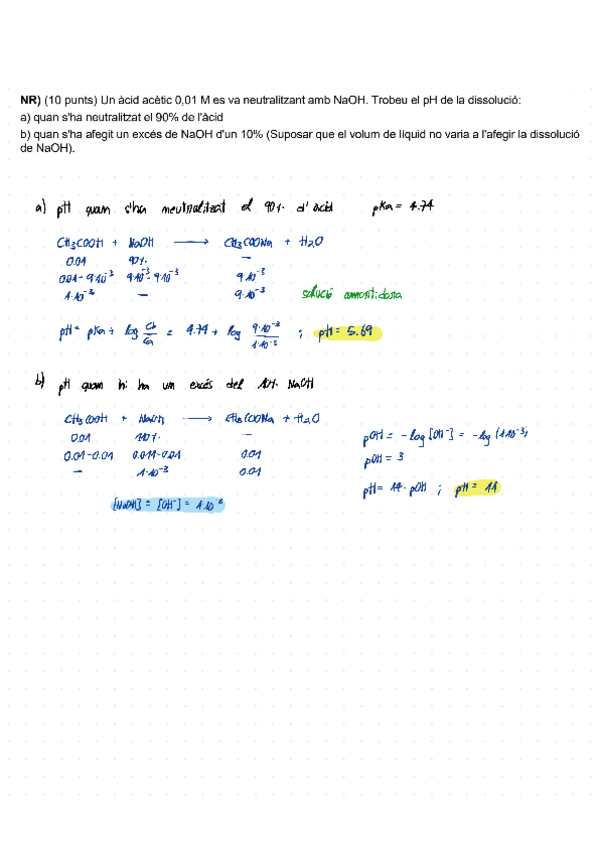 NR) (10 punts) Un àcid acètic 0,01 M es va neutralitzant amb NaOH. Trobeu el pH de la dissolució:
a) quan s'ha neutralitzat el 90% de l'àcid
b) quan s'ha afegit un excés de NaOH d'un 10% (Suposar que el volum de líquid no varia a l'afegir la dissolució
de NaOH).
a) pH quan s'ha neutralitzat el 90% d'àcid pKa = 4.74
CH3COOH + NaOH → CH3COONa + H2O
0.01 90% —
0.01 - 9·10⁻³ 9·10⁻³ - 9·10⁻³ 9·10⁻³
1·10⁻³ — 9·10⁻³ solució amortidora
pH = pKa + log Cb/Ca = 4.74 + log 9·10⁻³/1·10⁻³ ; pH = 5.69
b) pH quan hi ha un excés del 10% NaOH
CH3COOH + NaOH → CH3COONa + H2O
0.01 110% —
0.01-0.01 0.011-0.01 0.01
— 1·10⁻³ 0.01
[NaOH] = [OH⁻] = 1·10⁻³
pOH = -log [OH⁻] = -log (1·10⁻³)
pOH = 3
pH = 14 - pOH ; pH = 11